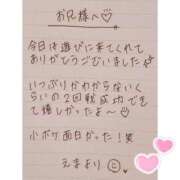 お兄様へ♡
今日は遊びに来てくれて
ありがとうございました
いつぶりかわからないく
らいの2回戦成功できて
嬉しかったよ〜♡
小ボケ面白かった！笑
えまより